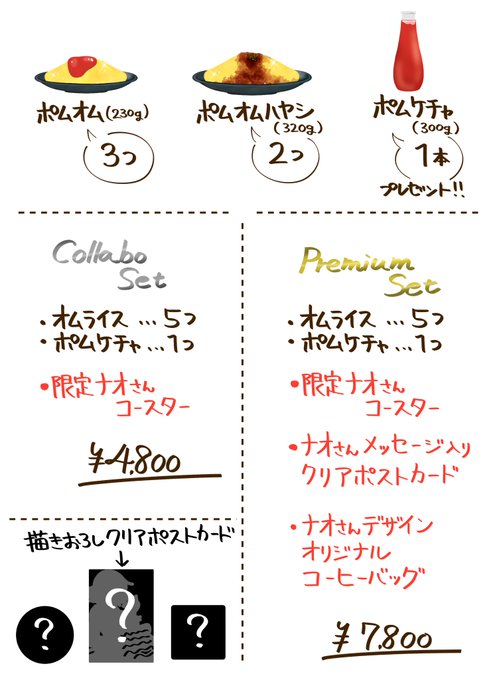 ポムオム(230g)
3つ
ポムオムハヤシ
(320g)
2つ
ポムケチャ
(300g)
1本
プレゼント!!
Collabo
Set
・オムライス…5つ
・ポムケチャ…1つ
・限定ナオさん
コースター
¥4,800
Premium
Set
・オムライス…5つ
・ポムケチャ…1つ
・限定ナオさん
コースター
・ナオさんメッセージ入り
クリアポストカード
・ナオさんデザイン
オリジナル
コーヒーバッグ
¥7,800
描きおろしクリアポストカード
↓
?
?
?